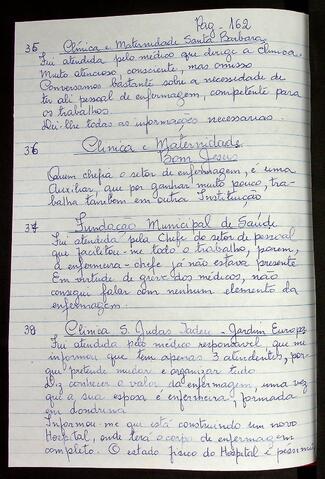 Pag - 162
35 Clinica e Maternidade Santa Barbara
Fui atendida pelo médico que dirige a clinica.
Muito atencioso, consciente, mas omisso
Conversamos bastante sobre a necessidade de
ter ali pessoal de enfermagem, competente para
os trabalhos
Dei-lhe todas as informações necessarias.
36 Clinica e Maternidade
Bom Jesus
Quem chefia o setor de enfermagem, é uma
Auxiliar, que por ganhar muito pouco, tra-
balha tambem em outra Instituição
37 Fundação Municipal de Saúde
Fui atendida pela Chefe do setor de pessoal
que facilitou-me todo o trabalho, porem,
a enfermeira-chefe já não estava presente
Em virtude de greve dos médicos, não
consegui falar com nenhum elemento da
enfermagem
38 Clinica S. Judas Tadeu - Jardim Europa
Fui atendida pelo médico responsável, que me
informou que tem apenas 3 atendentes, por-
que pretende mudar e organizar tudo
Diz conhecer o valor da enfermagem, uma vez
que a sua esposa é enfermeira, formada
em Londrina
Informou-me que está construindo um novo
Hospital, onde terá o corpo de enfermagem
completo. O estado fisico do Hospital é pessimo